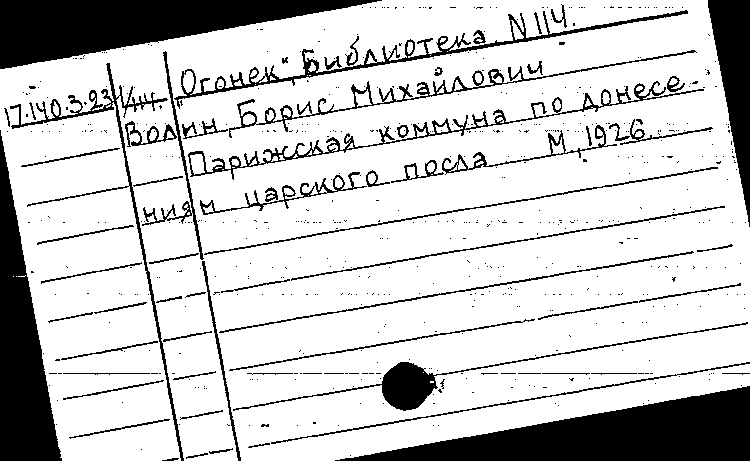 17.140.3.23 „Огонек", Библиотека. N 114.
Волин, Борис Михайлович
Парижская коммуна по донесе-
ниям царского посла М, 1926.